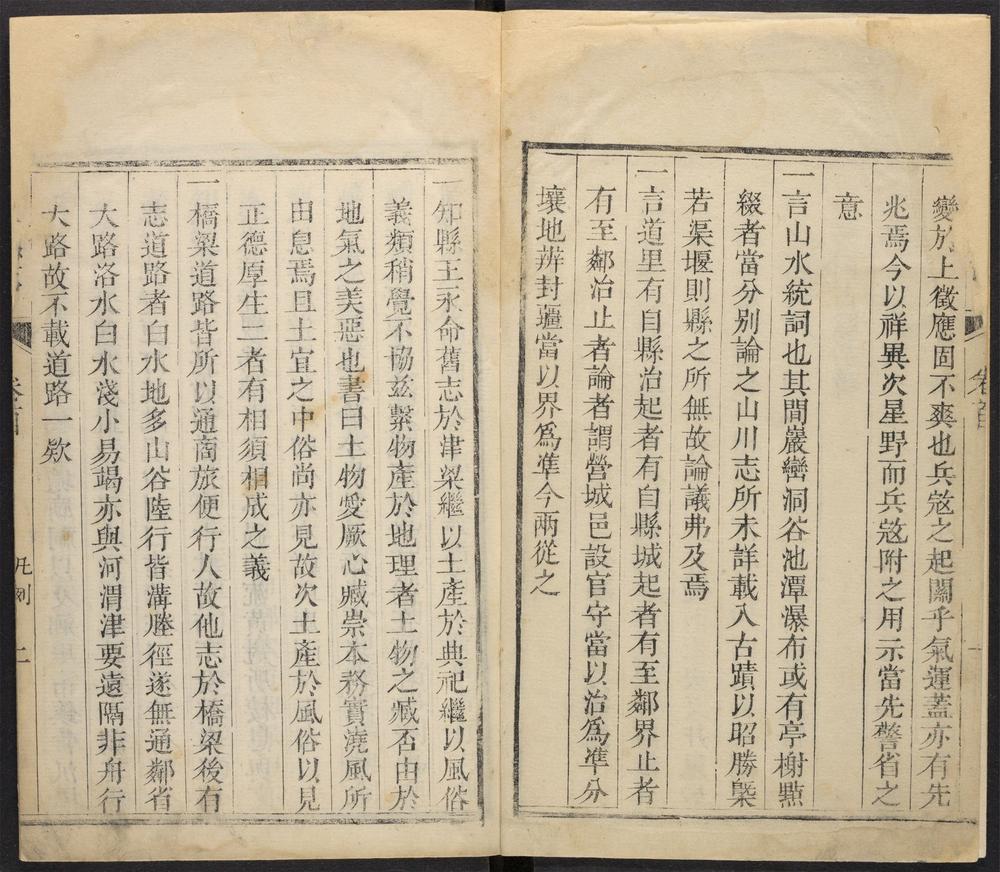 變於上徵應固不爽也兵寇之起關乎氣運蓋亦有先
兆焉今以祥異次星野而兵寇附之用示當先警省之
意
一言山水統詞也其間巖巒洞谷池潭瀑布或有亭榭㸃
綴者當分别論之山川志所未詳載入古蹟以昭勝槩
若渠堰則縣之所無故論議弗及焉
一言道里有自縣治起者有自縣城起者有至鄰界止者
有至鄰治止者論者謂營城邑設官守當以治爲凖分
壤地辨封疆當以界爲凖今兩從之
一知縣王永命舊志於津梁繼以土產於典祀繼以風俗
義類稍覺不協兹繫物產於地理者土物之臧否由於
地氣之美惡也書曰土物愛厥心臧崇本務實澆風所
由息焉且土宜之中俗尚亦見故次土產於風俗以見
正德厚生二者有相須相成之義
一橋梁道路皆所以通商旅便行人故他志於橋梁後有
志道路者白水地多山谷陸行皆溝塍徑遂無通鄰省
大路洛水白水淺小易竭亦與河渭津要遠隔非舟行
大路故不載道路一欵
卷首
凡例
二